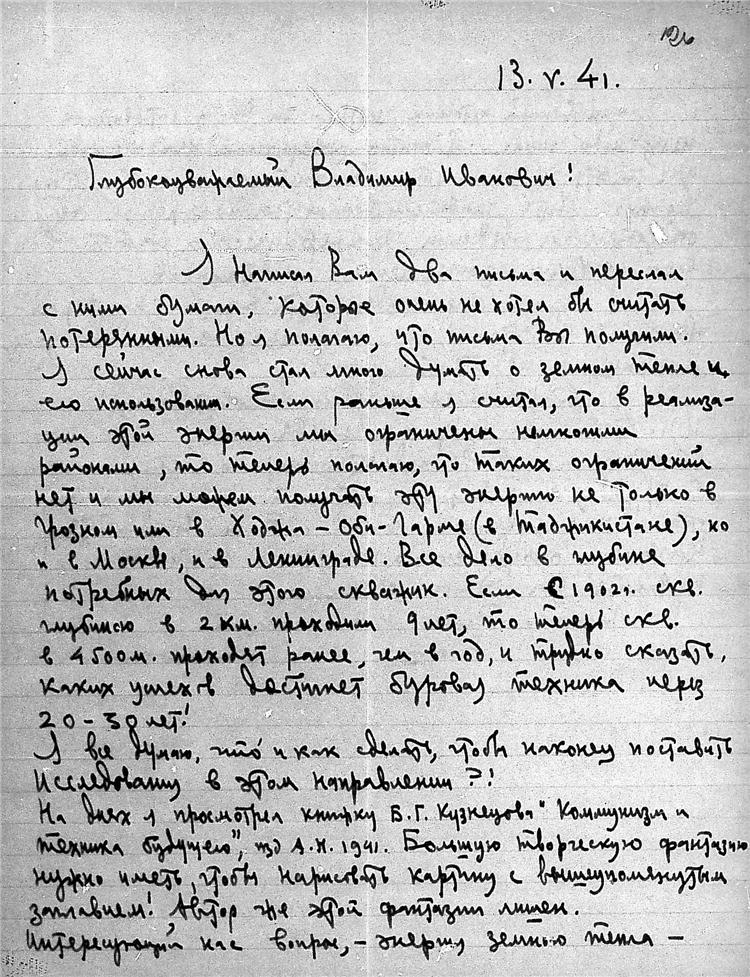 126
13. V. 41.
Глубокоуважаемый Владимир Иванович!
Я написал Вам два письма и переслал
с ними бумаги, которые очень не хотел бы считать
потерянными. Но я полагаю, что письма Вы получили.
Я сейчас снова стал много думать о земном тепле и
его использовании. Если раньше я считал, что в реализа-
ции этой энергии мы ограничены немногими
районами, то теперь полагаю, что таких ограничений
нет и мы можем получать эту энергию не только в
Грозном или в Ходжа-Оби-Гарме (в Таджикистане), но
и в Москве, и в Ленинграде. Все дело в глубине
потребных для этого скважин. Если с 1902 г. скв.
глубиною в 2 км. проходили 9 лет, то теперь скв.
в 4500 м. проходят ранее, чем в год, и трудно сказать,
каких успехов достигнет буровая техника через
20-30 лет!
Я все думаю, что и как сделать, чтобы наконец поставить
исследования в этом направлении?!
На днях я просмотрел книжку Б. Г. Кузнецова "Коммунизм и
техника будущего", изд А.Н. 1941. Большую творческую фантазию
нужно иметь, чтобы нарисовать картину с вышеупомянутым
заглавием! Автор же этой фантазии лишен.
Интересующий нас вопрос, - энергия земного тепла -